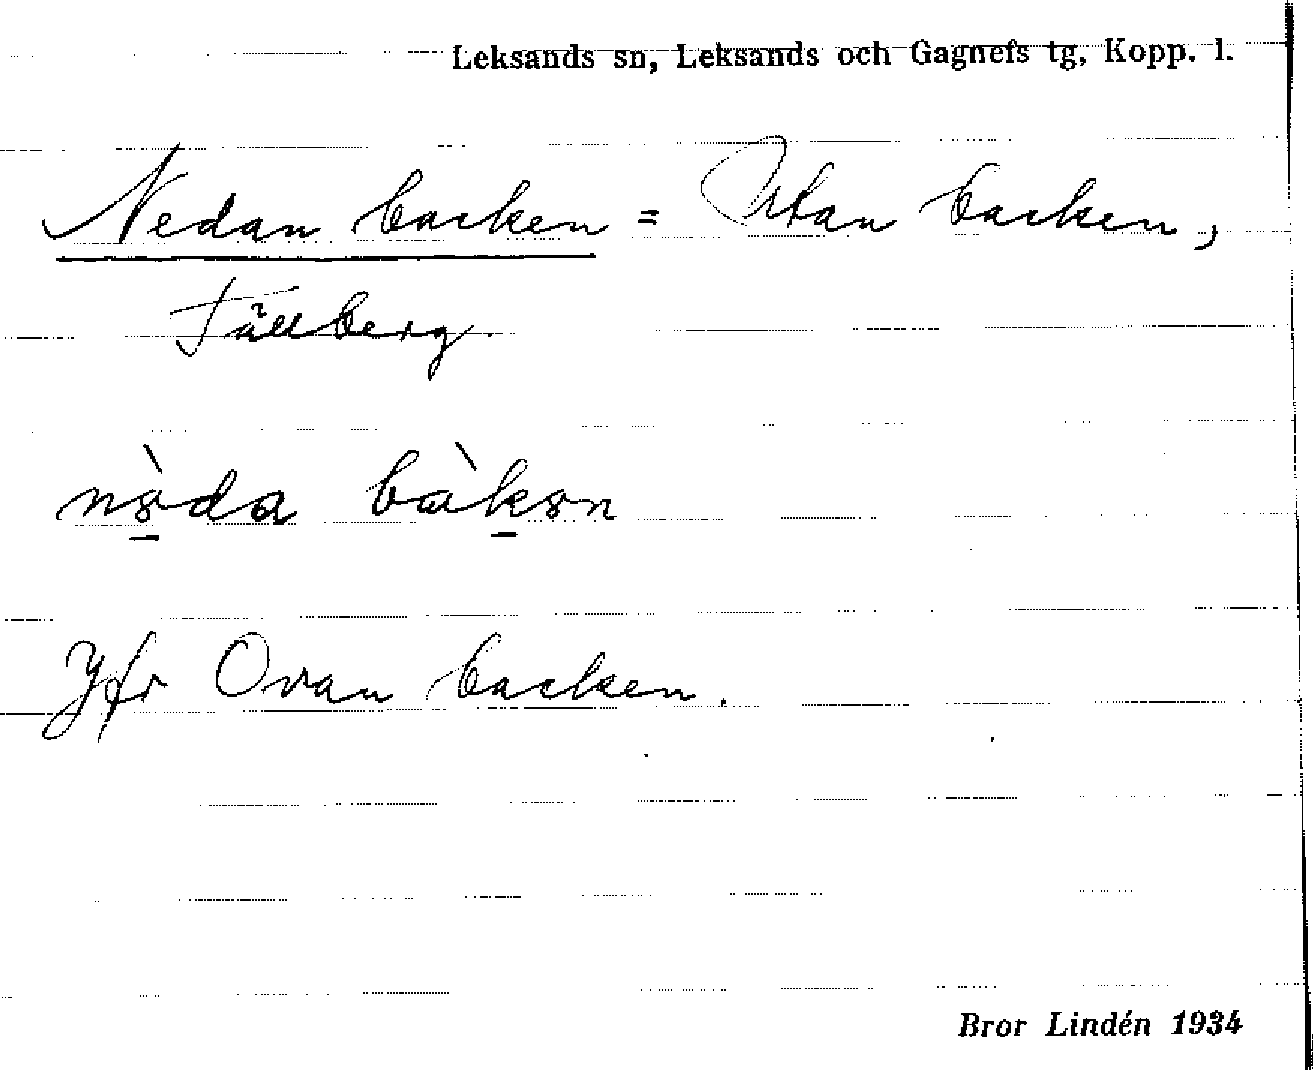 Leksands sn, Leksands och Gagnefs tg, Kopp. l.
Nedan backen = Utan backen,
Tällberg.
Jfr Ovan backen.
Bror Lindén 1934